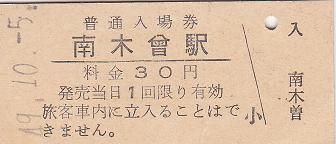 49.10.-5
普通入場券
南木曾駅
料金30円
発売当日1回限り有効
旅客車内に立入ることはで
きません。
小
入
南木曽